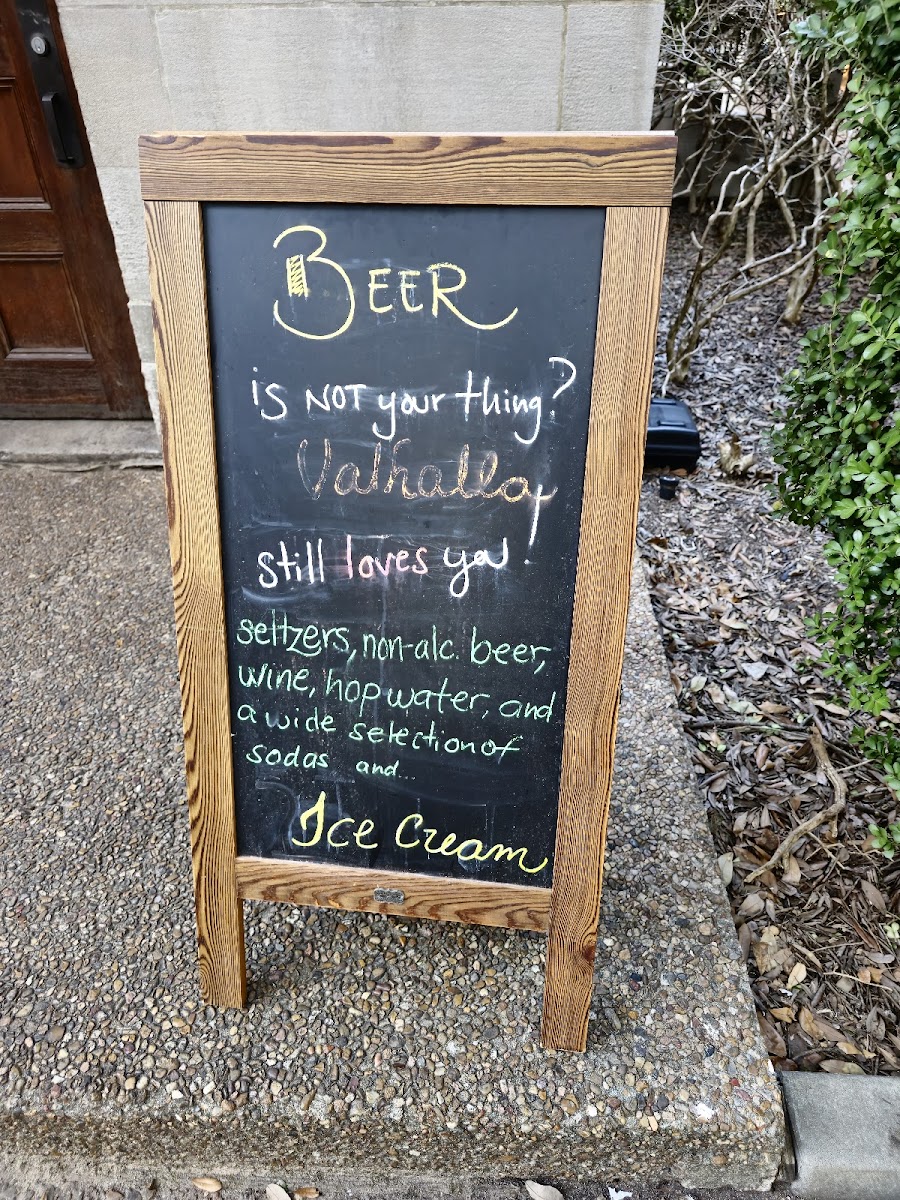 BEER
is NOT your thing?
Valhalla
still loves ya!
seltzers, non-alc. beer,
wine, hop water, and
a wide selection of
sodas and...
Ice Cream